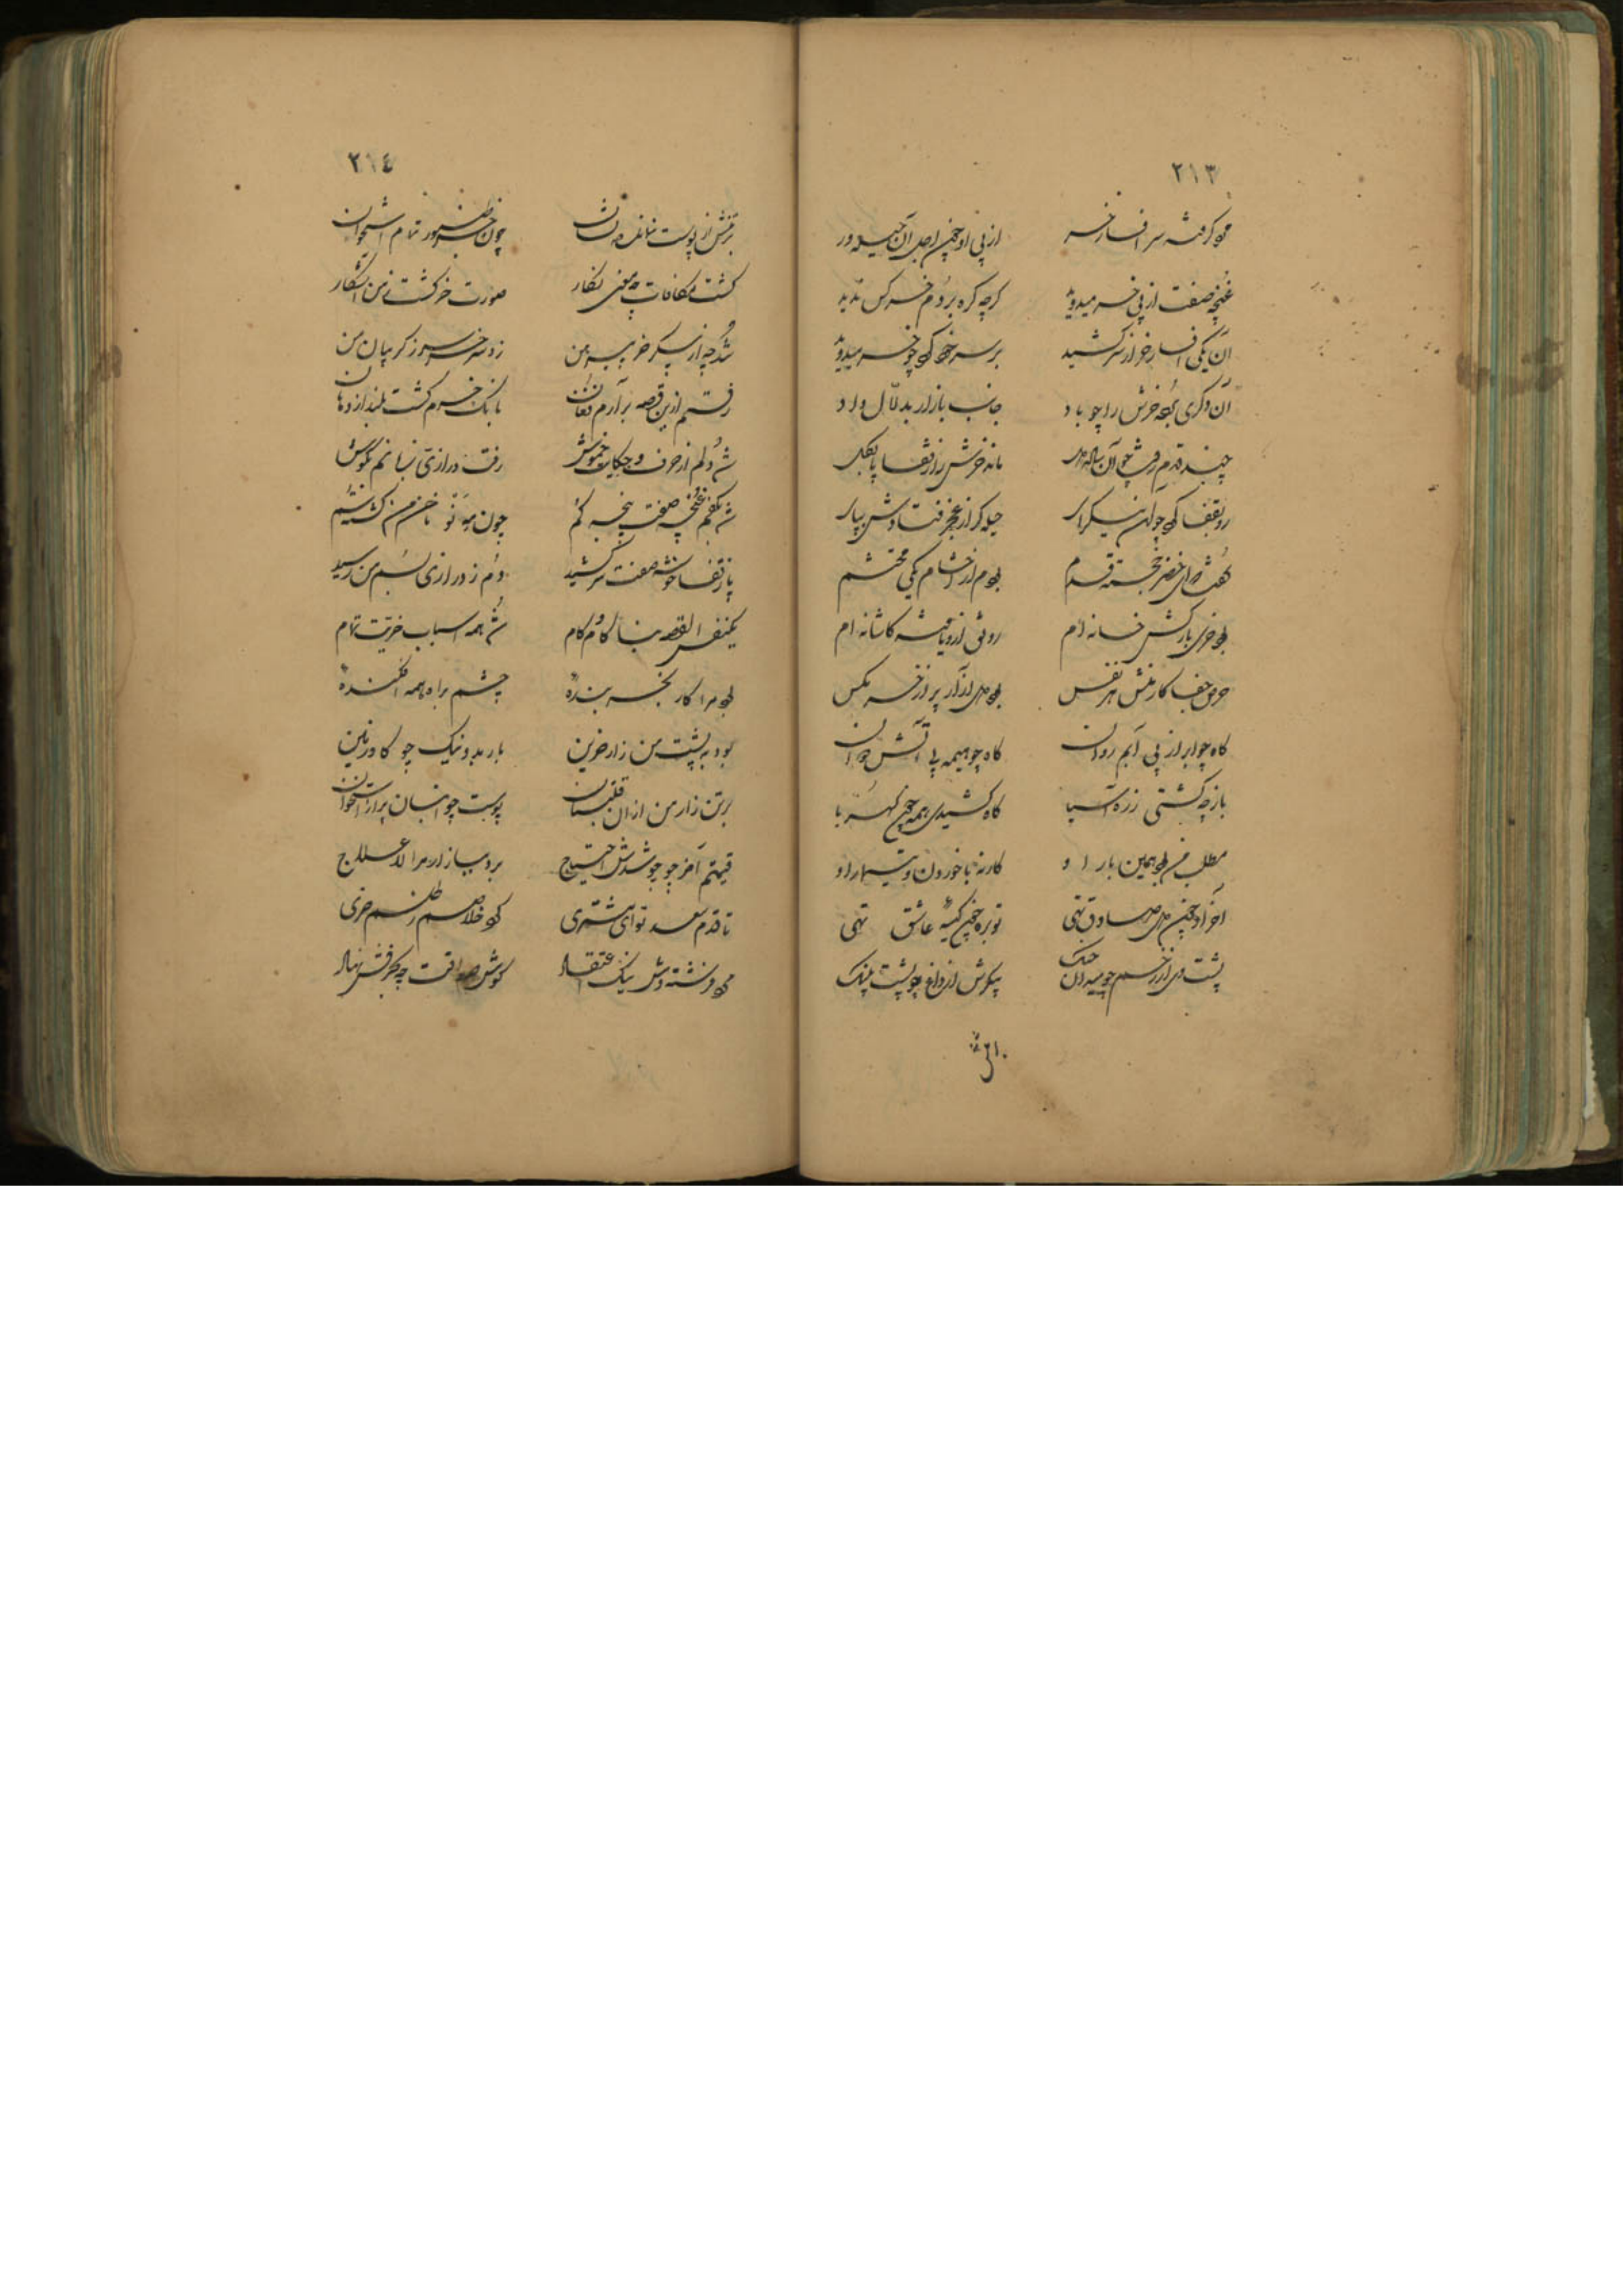 ٢١٣
گرفته سر افسار خر از پی او چنین اجل آن حیله ور
غنچه صفت از پی خر میدوید گرچه گره بر دم خر کس ندید
آن یکی افسار خر از سر کشید بر سر خود که چو خر میدوید
آن دگری بعد خرش را چو باد جانب بازار بدلال داد
چند قدم رفت چو آن ماند خرش را ز قفا
رو بقفا که چو آن حیله گر از عجز فتادش بپای
گفت که ای خضر خجسته قدم بودم از احشام یکی محتشم
بود خری بارکش خانه ام رونق ازو یافته کاشانه ام
حرف جفا کار منش هر نفس بود دل آزار تر از خر مگس
گاه چو ابر از پی آبم روان گاه چو هیمه پی آتش دوان
باز چه گشتی ز ره آسیا گاه کشیدی همه چون کهربا
مطلب من بود همین بار او کار نه با خوردن و تیمار او
آخر او چون دل صادق تهی توبره چون کیسه عاشق تهی
پشت وی از زخم چو میدان جنگ پیکرش از داغ چو پشت پلنگ
٢١٤
بر تنش از پوست نمانده نشان چون خر طنبور تمام استخوان
گشت مکافات چه معنی نگار صورت خر گشت ز من آشکار
شد چه از پیکر خر پیرهن زد سر خر سر ز گریبان من
رفتم ازین قصه بر آرم فغان بانگ خرم گشت بلند از دهان
شد دلم از حرف و حکایت خموش رفت درازی زبانم بگوش
شد بکفم غنچه صفت پنجه گم چون مه نو ناخن من گشت سم
باز قفا خوشه صفت سر کشید دم ز درازی بسم من رسید
یکنفس القصه بنا گام گام شد همه اسباب خریت تمام
بود مرا کار بخر بنده چشم براه همه افکنده
بود به پشت من زار حزین بار بد و نیک چو گاو زمین
بر تن زار من از آن قلتبان پوست چو انبان پر از استخوان
قیمتم آخر چو شدش احتیاج برد ببازار مرا لاعلاج
تا قدم سعد تو ای مشتری کرد خلاصم ز طلسم خری
مرد فرشته وش نیک اعتقاد گوش صداقت چه بحرفش نهاد